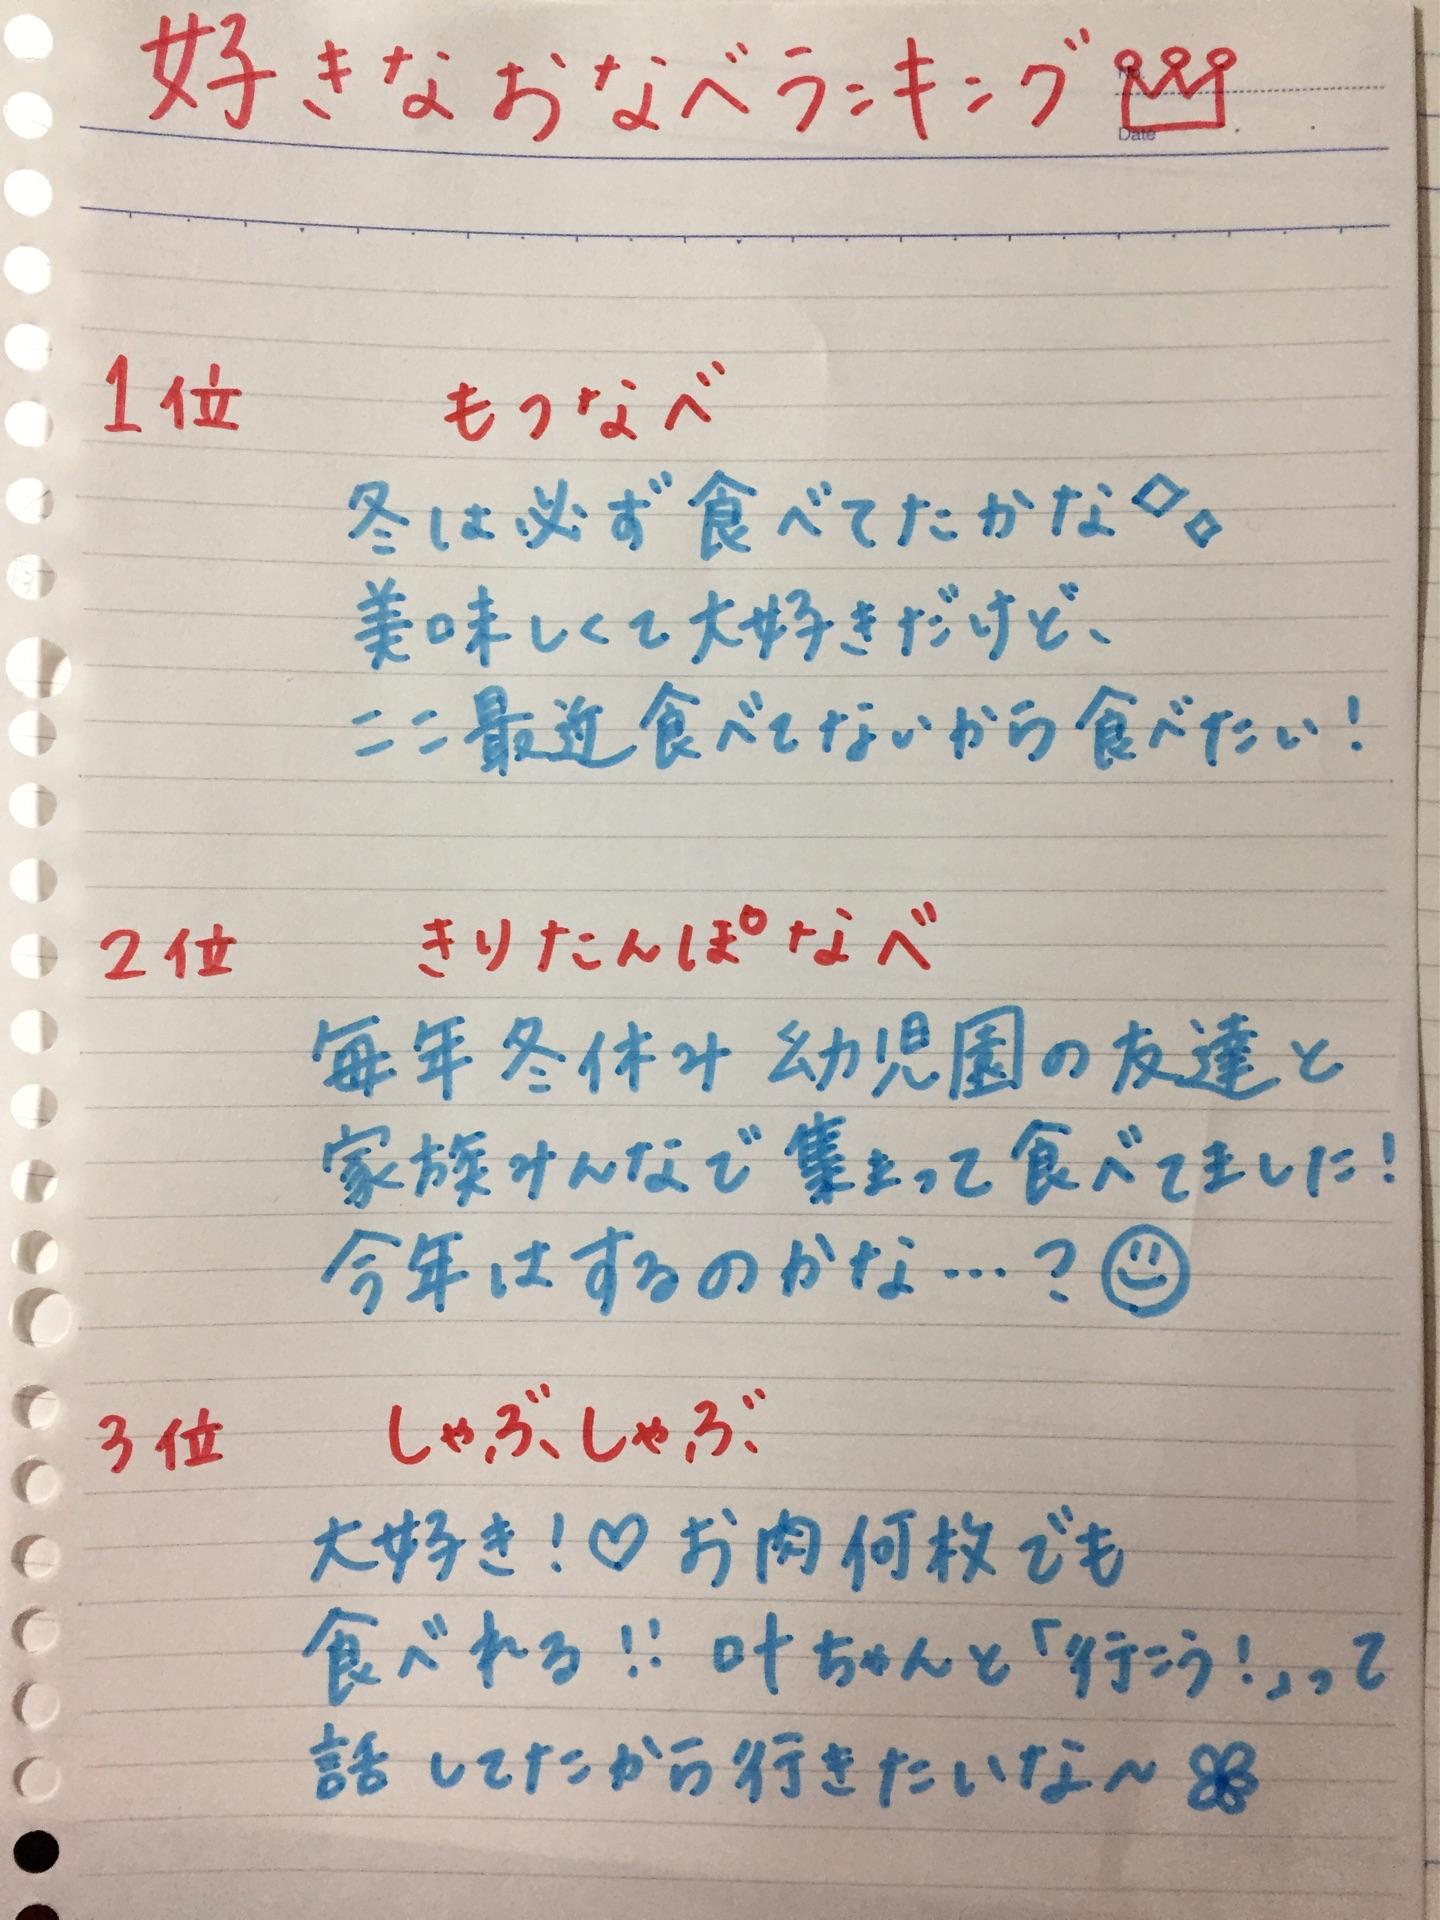 好きなおなべランキング
No.
Date
1位 もつなべ
冬は必ず食べてたかな
美味しくて大好きだけど、
ここ最近食べてないから食べたい!
2位 きりたんぽなべ
毎年冬休み幼児園の友達と
家族みんなで集まって食べてました!
今年はするのかな…?
3位 しゃぶしゃぶ
大好き!♡お肉何枚でも
食べれる!!叶ちゃんと「行こう!」って
話してたから行きたいな〜